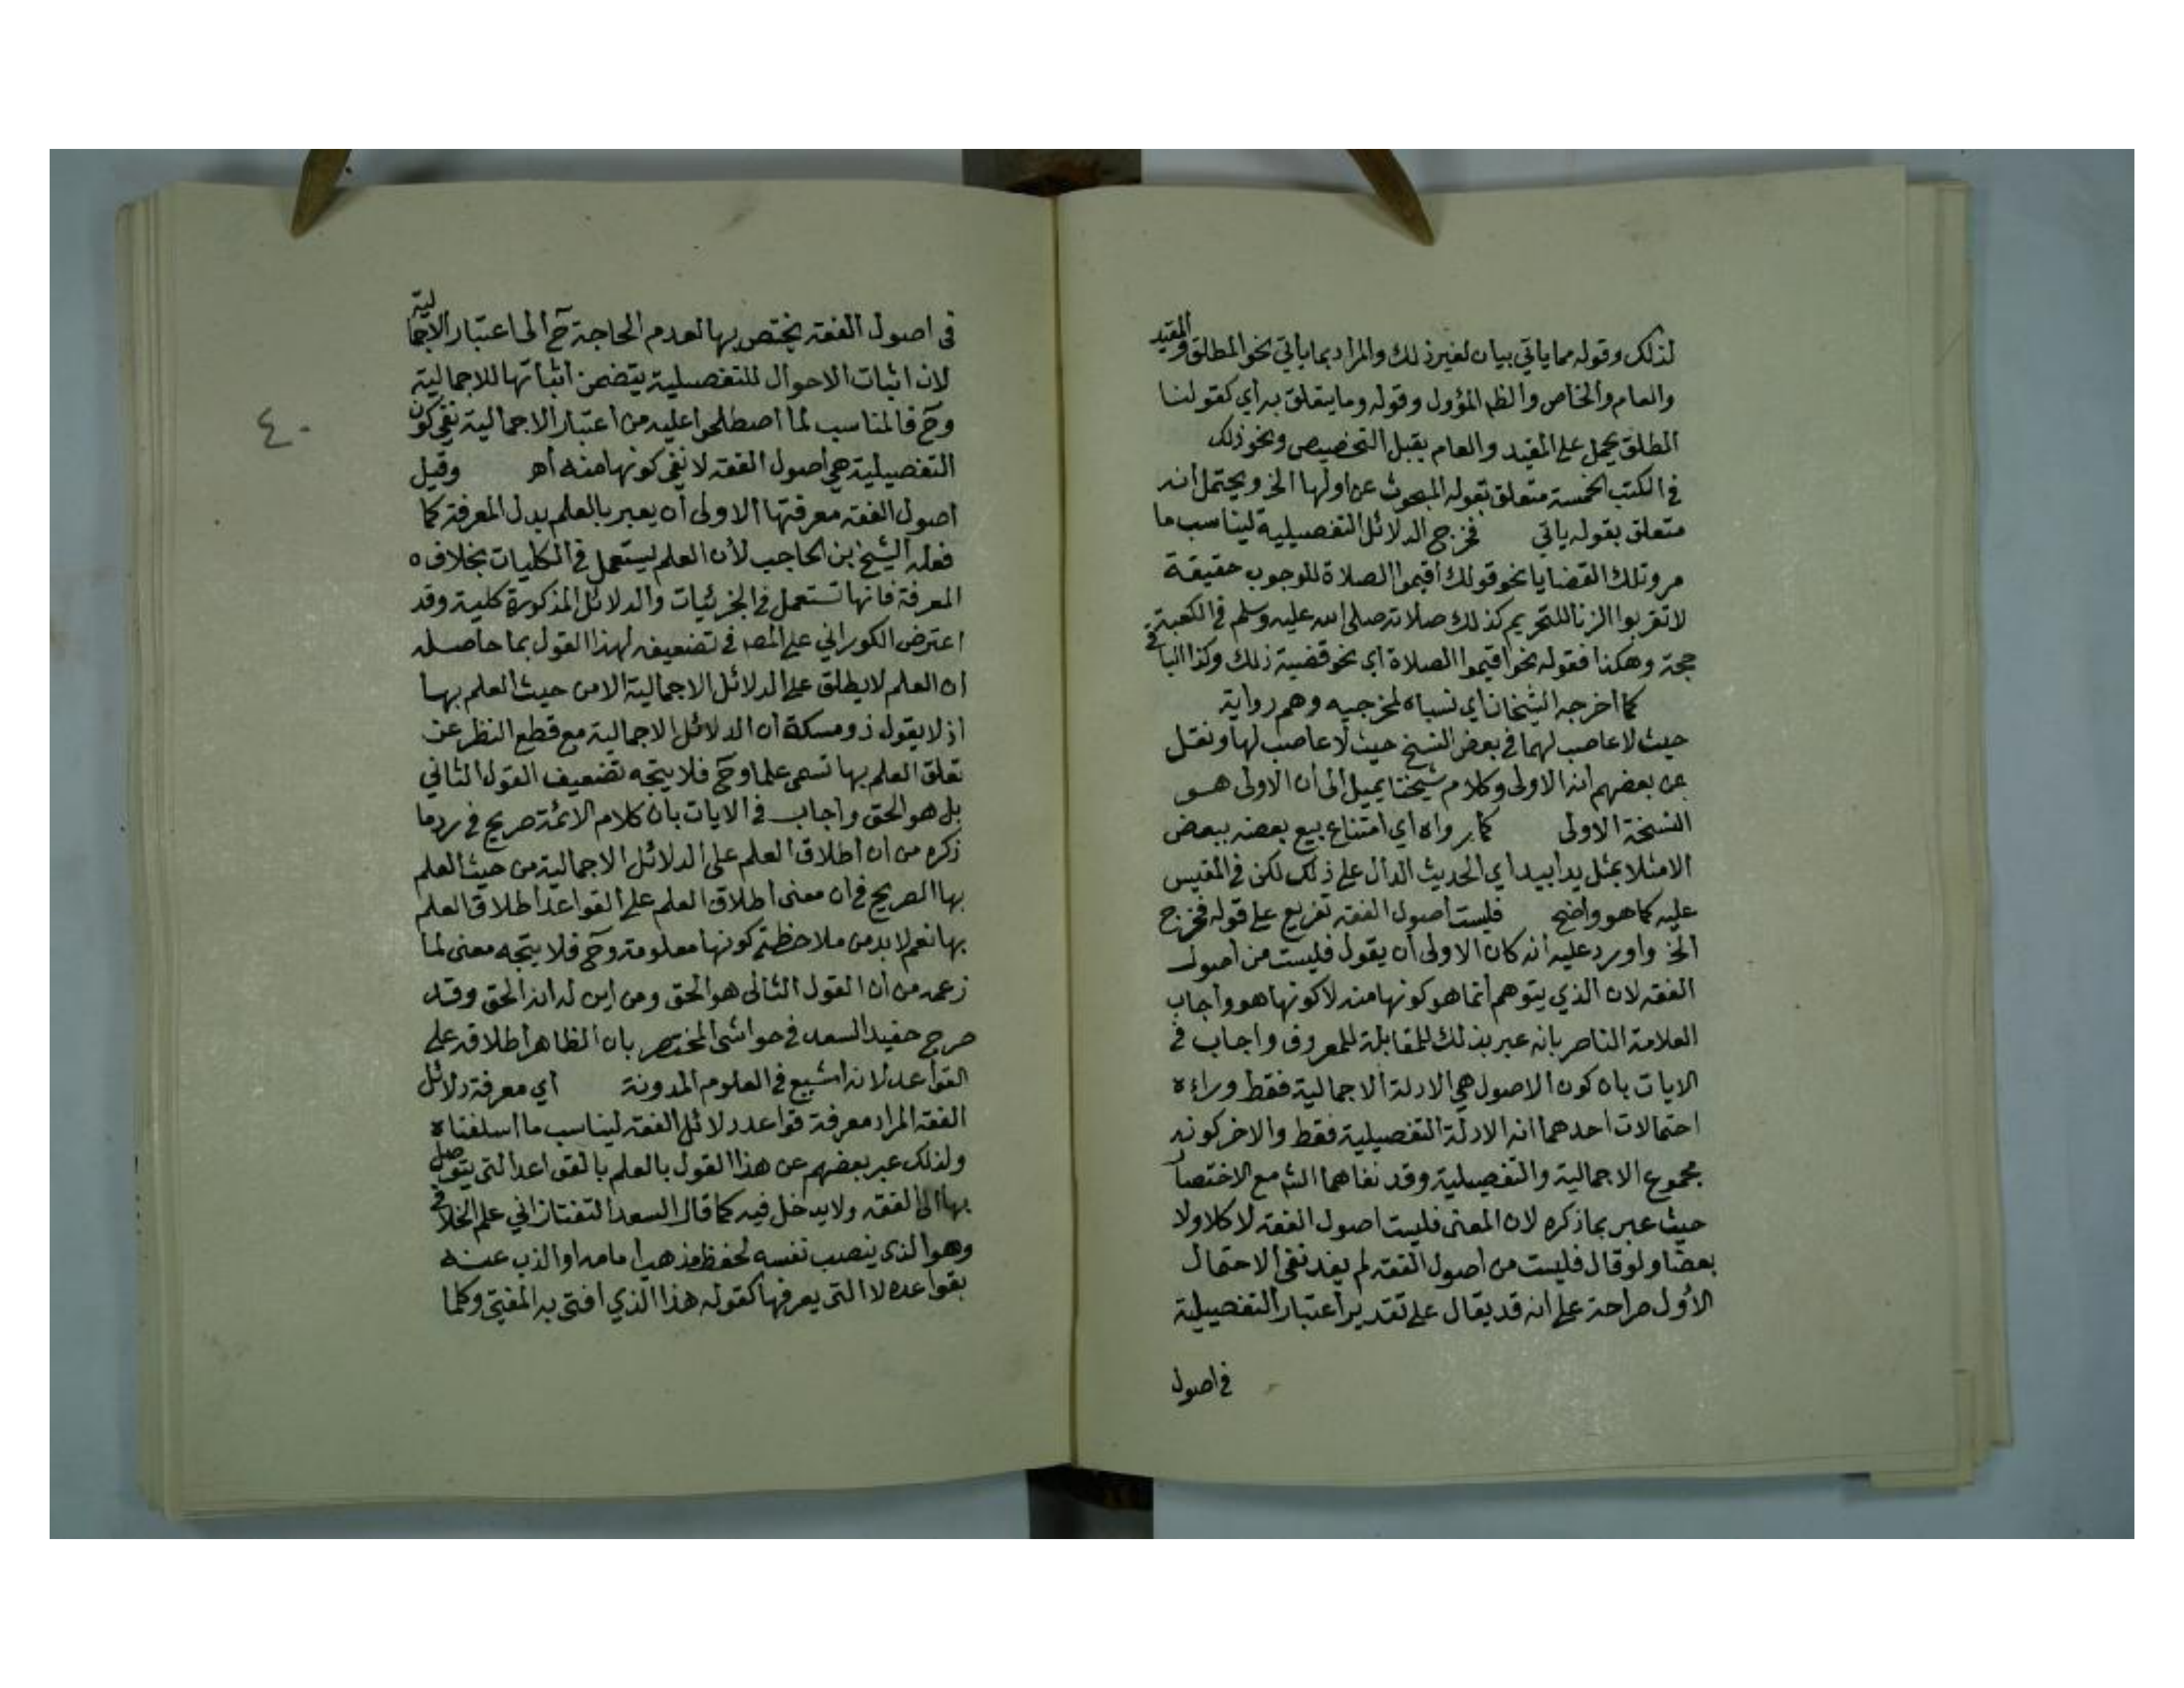 لذلك وقوله مما ياتي بيان لغير ذلك والمراد بما ياتي نحو المطلق والمقيد
والعام والخاص والظ المؤول وقوله وما يتعلق به اي كقولنا
المطلق يحمل على المقيد والعام يقبل التخصيص ونحو ذلك
في الكتب الخمسة متعلق بقوله المبحوث عن اولها الخ ويحتمل انه
متعلق بقوله ياتي فخرج الدلائل التفصيلية ليناسب ما
مر وتلك القضايا نحو قولك اقيموا الصلاة للوجوب حقيقة
لا تقربوا الزنا للتحريم كذلك صلاته صلى الله عليه وسلم في الكعبة
حجة وهكذا فقوله نحو اقيموا الصلاة اي نحو قضية ذلك وكذا الباقي
كما اخرجه الشيخان اي نسباه لمخرجيه وهم رواية
حيث لا عاصب لهما في بعض النسخ حيث لا عاصب لها ونقل
عن بعضهم انه الاولى وكلام شيخنا يميل الى ان الاولى هو
النسخة الاولى كما رواه اي امتناع بيع بعضه ببعض
الا مثلا بمثل يدا بيد اي الحديث الدال على ذلك لكن في المقيس
عليه كما هو واضح فليست اصول الفقه تفريع على قوله فخرج
الخ واورد عليه انه كان الاولى ان يقول فليست من اصول
الفقه لان الذي يتوهم انما هو كونها منه لا كونها هو واجاب
العلامة الناصر بانه عبر بذلك للمقابلة للمعروف واجاب في
الايات بان كون الاصول هي الادلة الاجمالية فقط وراءه
احتمالات احدهما انه الادلة التفصيلية فقط والاخر كونه
مجموع الاجمالية والتفصيلية وقد نفاهما الش مع الاختصا
حيث عبر بما ذكره لان المعنى فليست اصول الفقه لا كلا ولا
بعضا ولو قال فليست من اصول الفقه لم يفد نفي الاحتمال
الأول صراحة على انه قد يقال على تقدير اعتبار التفصيلية
في اصول
في اصول الفقه يختص بها لعدم الحاجة ح الى اعتبار الاجمالية
لان اثبات الاحوال للتفصيلية يتضمن اثباتها للاجمالية
وح فالمناسب لما اصطلحوا عليه من اعتبار الاجمالية نفي كون
٤٠
التفصيلية هي اصول الفقه لا نفي كونها منه اهـ وقيل
اصول الفقه معرفتها الاولى ان يعبر بالعلم بدل المعرفة كما
فعله الشيخ ابن الحاجب لأن العلم يستعمل في الكليات بخلاف ه
المعرفة فانها تستعمل في الجزئيات والدلائل المذكورة كلية وقد
اعترض الكوراني على المص في تضعيفه لهذا القول بما حاصله
ان العلم لا يطلق على الدلائل الاجمالية الا من حيث العلم بها
اذ لا يقول ذو مسكة ان الدلائل الاجمالية مع قطع النظر عن
تعلق العلم بها تسمى علما وح فلا يتجه تضعيف القول الثاني
بل هو الحق واجاب في الايات بان كلام الائمة صريح في رد ما
ذكره من ان اطلاق العلم على الدلائل الاجمالية من حيث العلم
بها الصريح في ان معنى اطلاق العلم على القواعد اطلاق العلم
بها نعم لا بد من ملاحظة كونها معلومة وح فلا يتجه معنى لما
زعمه من ان القول الثاني هو الحق ومن اين له انه الحق وقد
صرح حفيد السعد في حواشي المختصر بان الظاهر اطلاقه على
القواعد لانه اشيع في العلوم المدونة اي معرفة دلائل
الفقه المراد معرفة قواعد دلائل الفقه ليناسب ما اسلفناه
ولذلك عبر بعضهم عن هذا القول بالعلم بالقواعد التي يتوصل
بها الى الفقه ولا يدخل فيه كما قال السعد التفتازاني علم الخلاف
وهو الذي ينصب نفسه لحفظ مذهب امامه او الذب عنه
بقواعده لا التي يعرفها كقوله هذا الذي افتى به المفتي وكلما